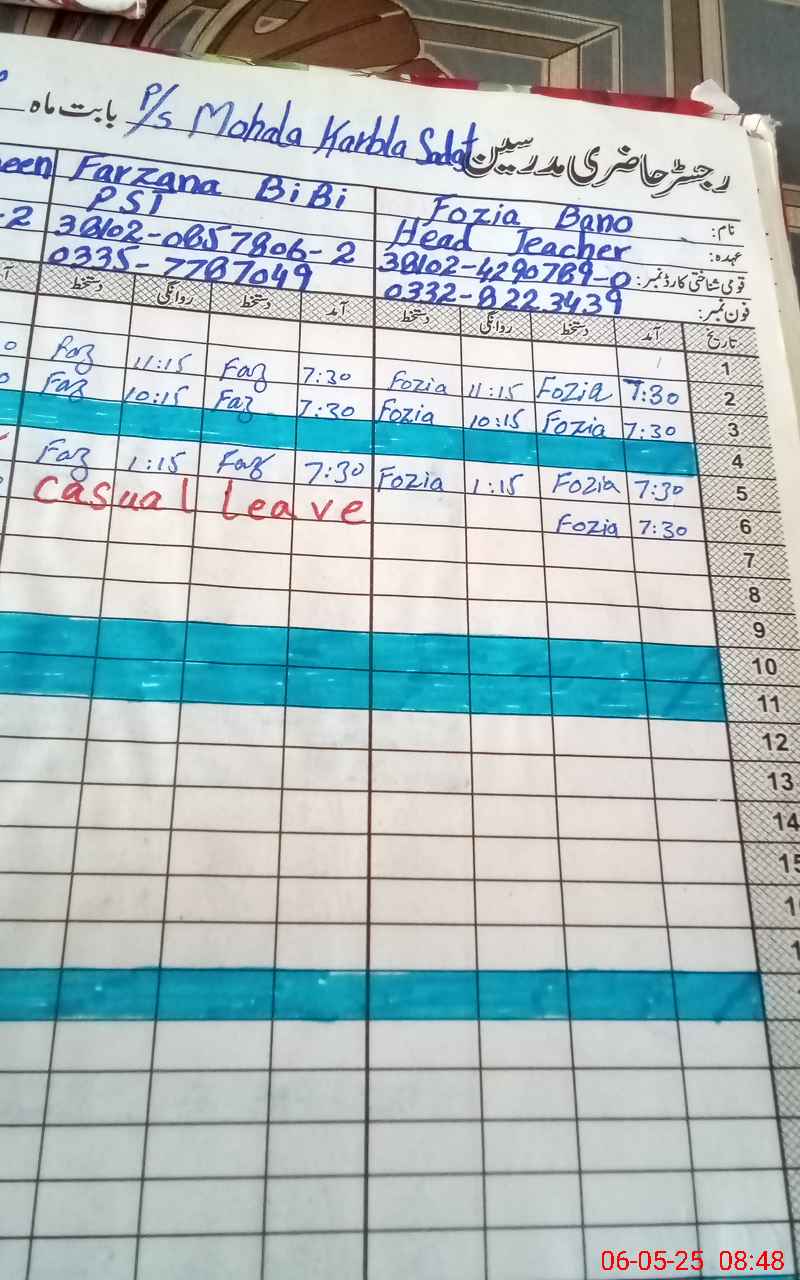 رجسٹر حاضری مدرسین P/S Mohala Karbla Sadat بابت ماہ
نام: Fozia Bano Farzana BiBi een
عہدہ: Head Teacher PST
قومی شناختی کارڈ نمبر: 38102-4290789-0 38102-0857806-2 -2
فون نمبر: 0332-8223439 0335-7787049
تاریخ آمد دستخط روانگی دستخط آمد دستخط روانگی دستخط
1
2 7:30 Fozia 11:15 Fozia 7:30 Faz 11:15 Faz
3 7:30 Fozia 10:15 Fozia 7:30 Faz 10:15 Faz
4
5 7:30 Fozia 1:15 Fozia 7:30 Faz 1:15 Faz
6 7:30 Fozia casual leave
7
8
9
10
11
12
13
14
15
06-05-25 08:48